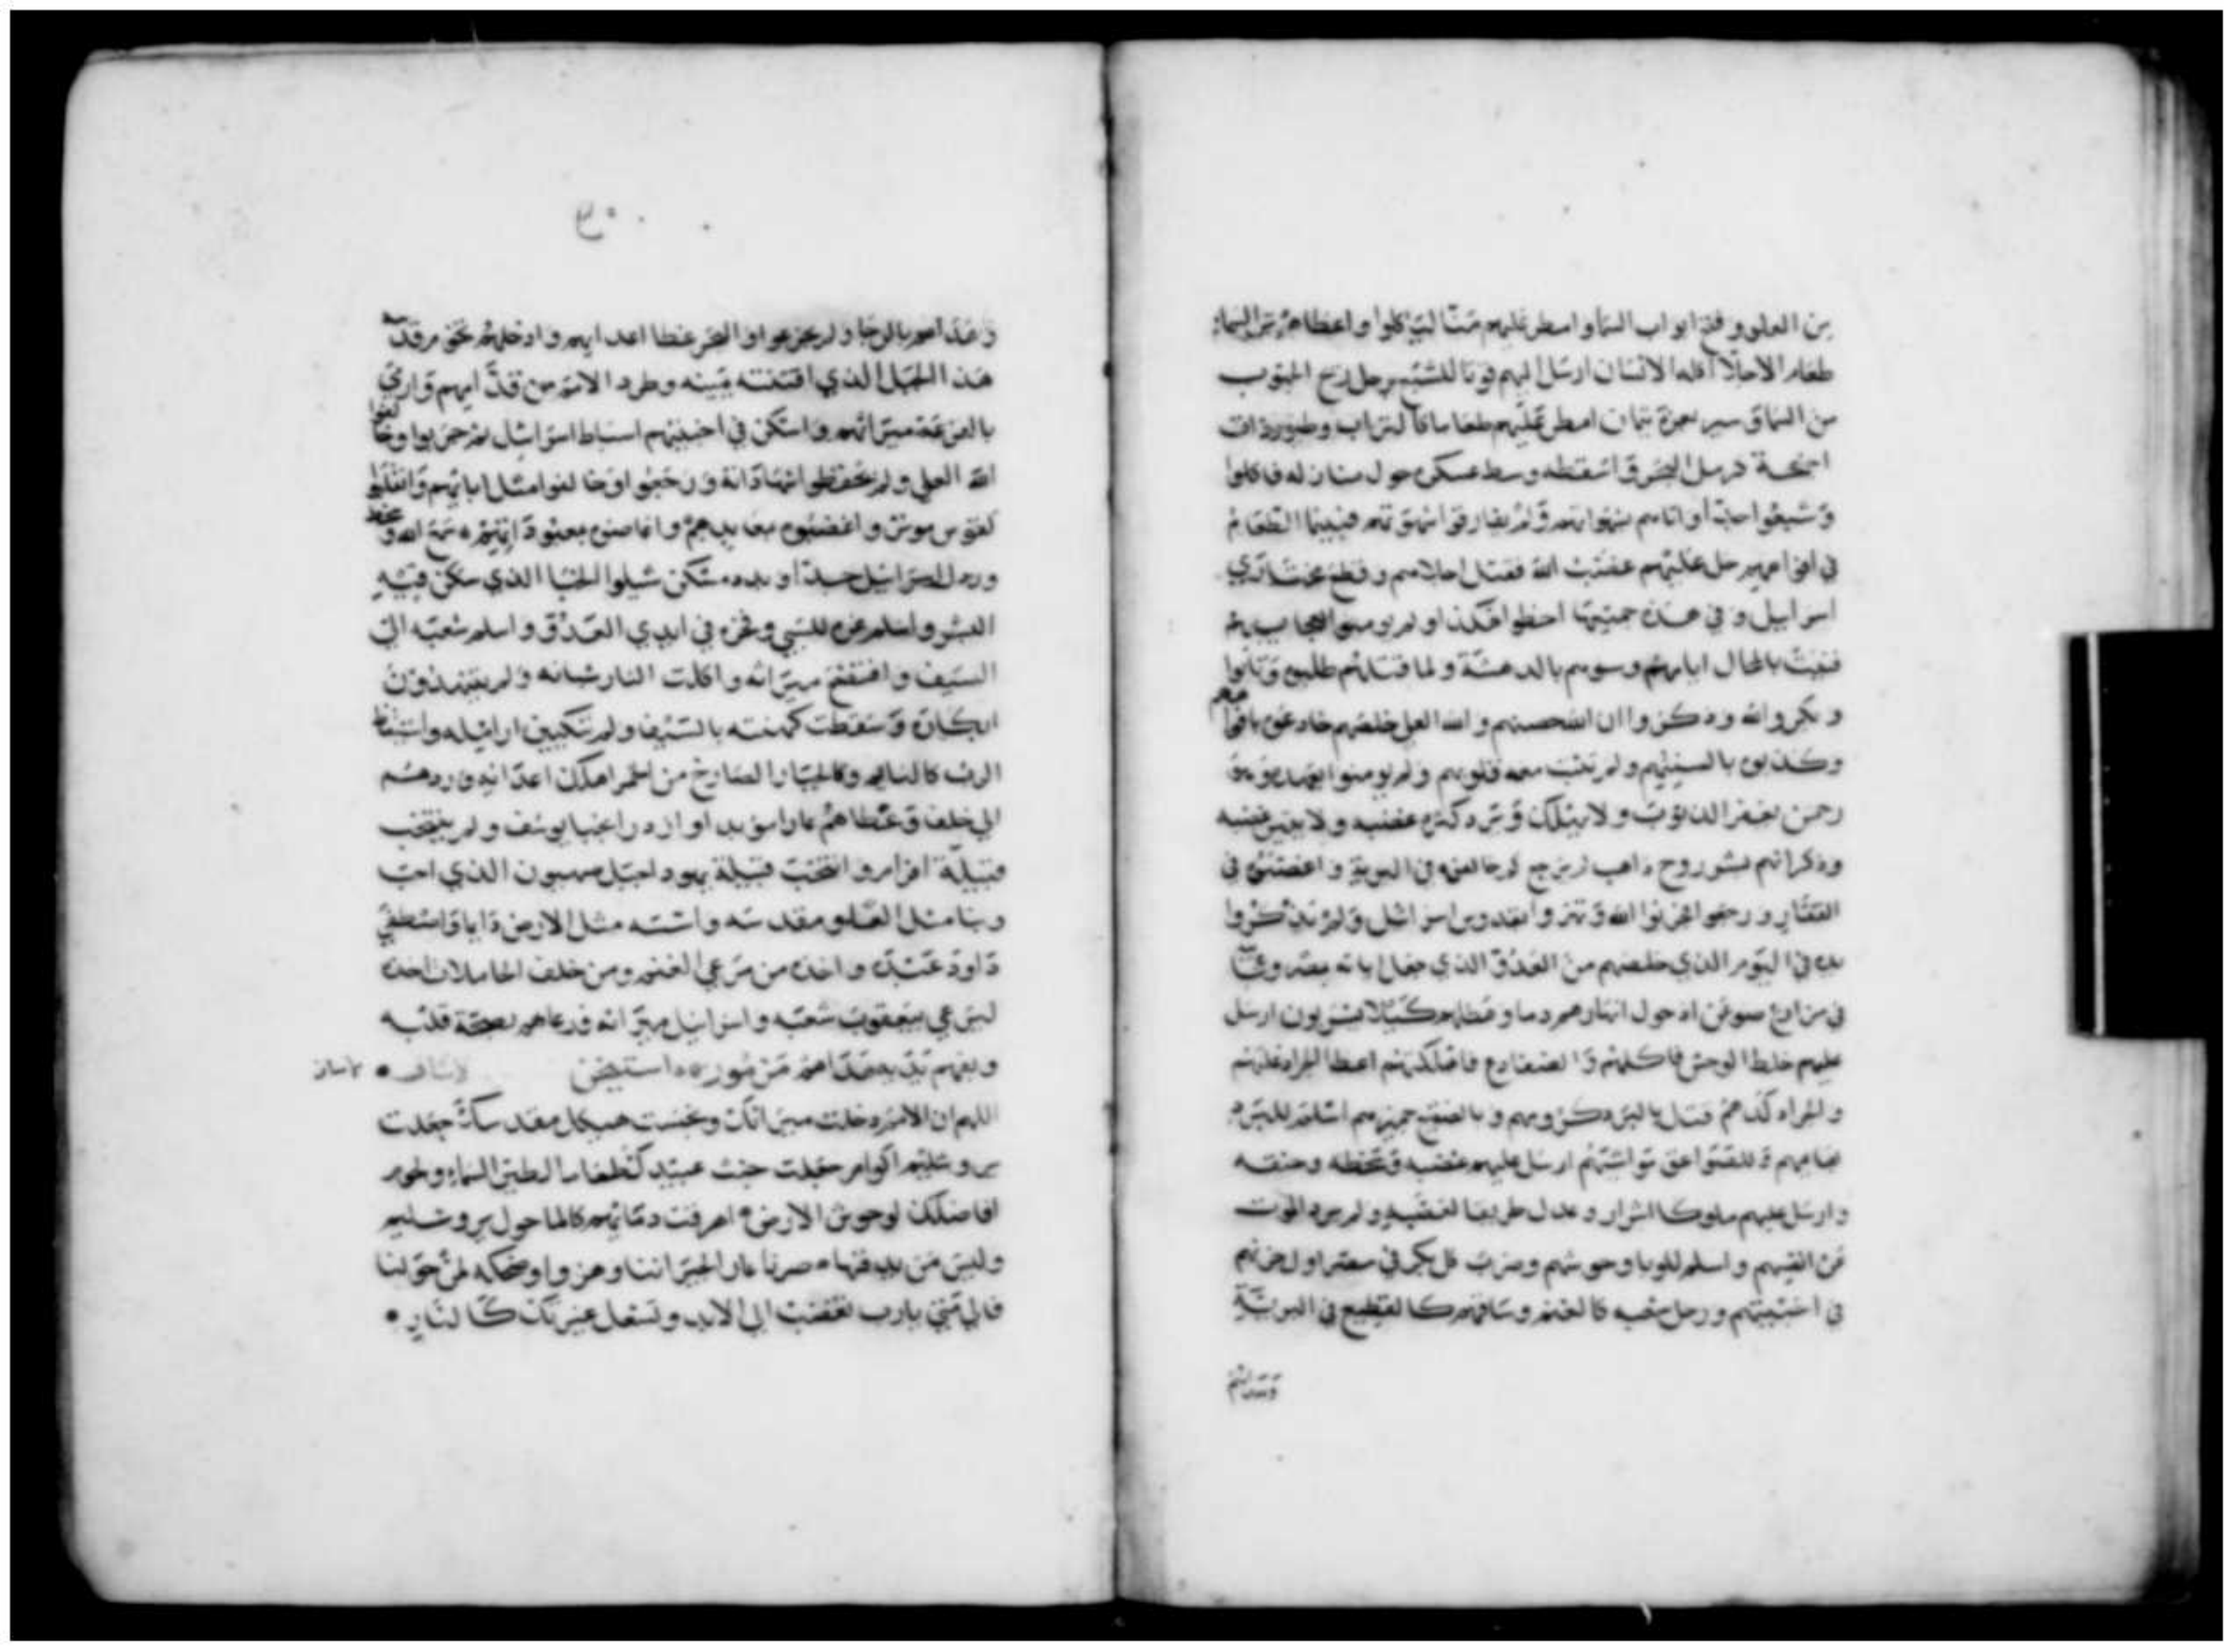 من العلو وفتح ابواب السما وامطر عليهم منا ليأكلوا واعطاهم خبز السماء
طعام الاجلا اكله الانسان ارسل اليهم قوتا للشبع رحل ريح الجنوب
من السما وسير بعزة تيمان امطر عليهم طعاما كالتراب وطيور ذات
اجنحة كرمل البحر واسقطه وسط عسكره حول منازله فاكلوا
وشبعوا جدا واتاهم شهواتهم ولم يفارقوا شهوتهم فبينما الطعام
في افواههم حل عليهم غضب الله فقتل اجلاهم وقطع مختاري
اسرائيل وفي هذه جميعها اخطوا هكذا ولم يومنوا بعجايبه
ففنيت بالمحال ايامهم وسنوهم بالدهشة ولما قتلهم طلبوه وتابوا
وبكروا لله وذكروا ان الله حصنهم والله العلي مخلصهم خادعوه بافواههم
وكذبوه بالسنتهم ولم تثبت معه قلوبهم ولم يومنوا بعهده وهو
رحمن يغفر الذنوب ولا يهلك ويرد كثرة غضبه ولا يهيج غضبه
وذكر انهم بشر روح ذاهب لم يرجع كم خالفوه في البرية واغضبوه في
القفار ورجعوا جربوا الله وتمرد وا بقدوس اسرائيل ولم يذكروا
يده في اليوم الذي خلصهم من العدو الذي جعل اياته بمصر
في مزارع صوعن اذ حول انهارهم دما ومطرهم كيلا يشربون ارسل
عليهم خلط الوحش فاكلهم والضفادع فاهلكتهم اعطا الجراد غلتهم
والجراد كدهم قتل بالبرد كرومهم وبالصقيع جميزهم اسلم للبرد
بهايمهم وللصواعق مواشيهم ارسل عليهم غضبه وسخطه وحنقه
وارسل عليهم ملوكا اشرار وعدل طريقا لغضبه ولم يرد الموت
عن انفسهم واسلم للوبا وحوشهم وضرب كل بكر في مصر اول
في اخبيتهم ورحل شعبه كالغنم وساقهم كالقطيع في البرية
وهداهم
٣٠
وهداهم بالرجا ولم يجزعوا والبحر غطا اعدايهم وادخلهم نحو مرقدسه
هذا الجبل الذي اقتنته يمينه وطرد الامم من قدامهم
بالقرعة ميراثهم واسكن في اخبيتهم اسباط اسرائيل ثم جربوا وخالفوا
الله العلي ولم يحفظوا شهاداته ورجعوا وخالفوا مثل ابائهم وانقلبوا
كقوس موتر واغضبوه وغاصوه بمعبوداتهم سمع الله
ورذل اسرائيل جدا وبدد مسكن شيلوا الخبا الذي سكن فيه
البشر واسلم عزه للسبي وفخره في ايدي العدو واسلم شعبه الى
السيف وافتقع ميراثه واكلت النار شبانه ولم
ابكاره وسقطت كهنته بالسيف ولم تبكين ارامله واستيقظ
الرب كالنايم وكالجبار الصارخ من الخمر اهلك اعدائه وردهم
الى خلف وعطاهم عارا مؤبدا وازدرا خبا يوسف ولم ينتخب
قبيلة افرام وانتخب قبيلة يهودا جبل صهيون الذي احب
وبنا مثل العلو مقدسه واسسه مثل الارض دايما واصطفى
داود عبده واخذه من مرعى الغنم ومن خلف الحاملات اخذه
ليرعى يعقوب شعبه واسرائيل ميراثه فرعاهم بصحة قلبه
وبفهم يديه هداهم
لاساف
اللهم ان الامم دخلت ميراثك ونجست هيكل مقدسك جعلت
يروشليم جعلت جثث عبيدك طعاما لطير السماء ولحوم
افاضلك لوحوش الارض اهرقت دمائهم كالما حول يروشليم
وليس من يدفنها صرنا عارا لجيراننا وهزوا وضحكه لمن حولنا
فالى متى يارب تغضب الى الابد وتشعل غيرتك كالنار